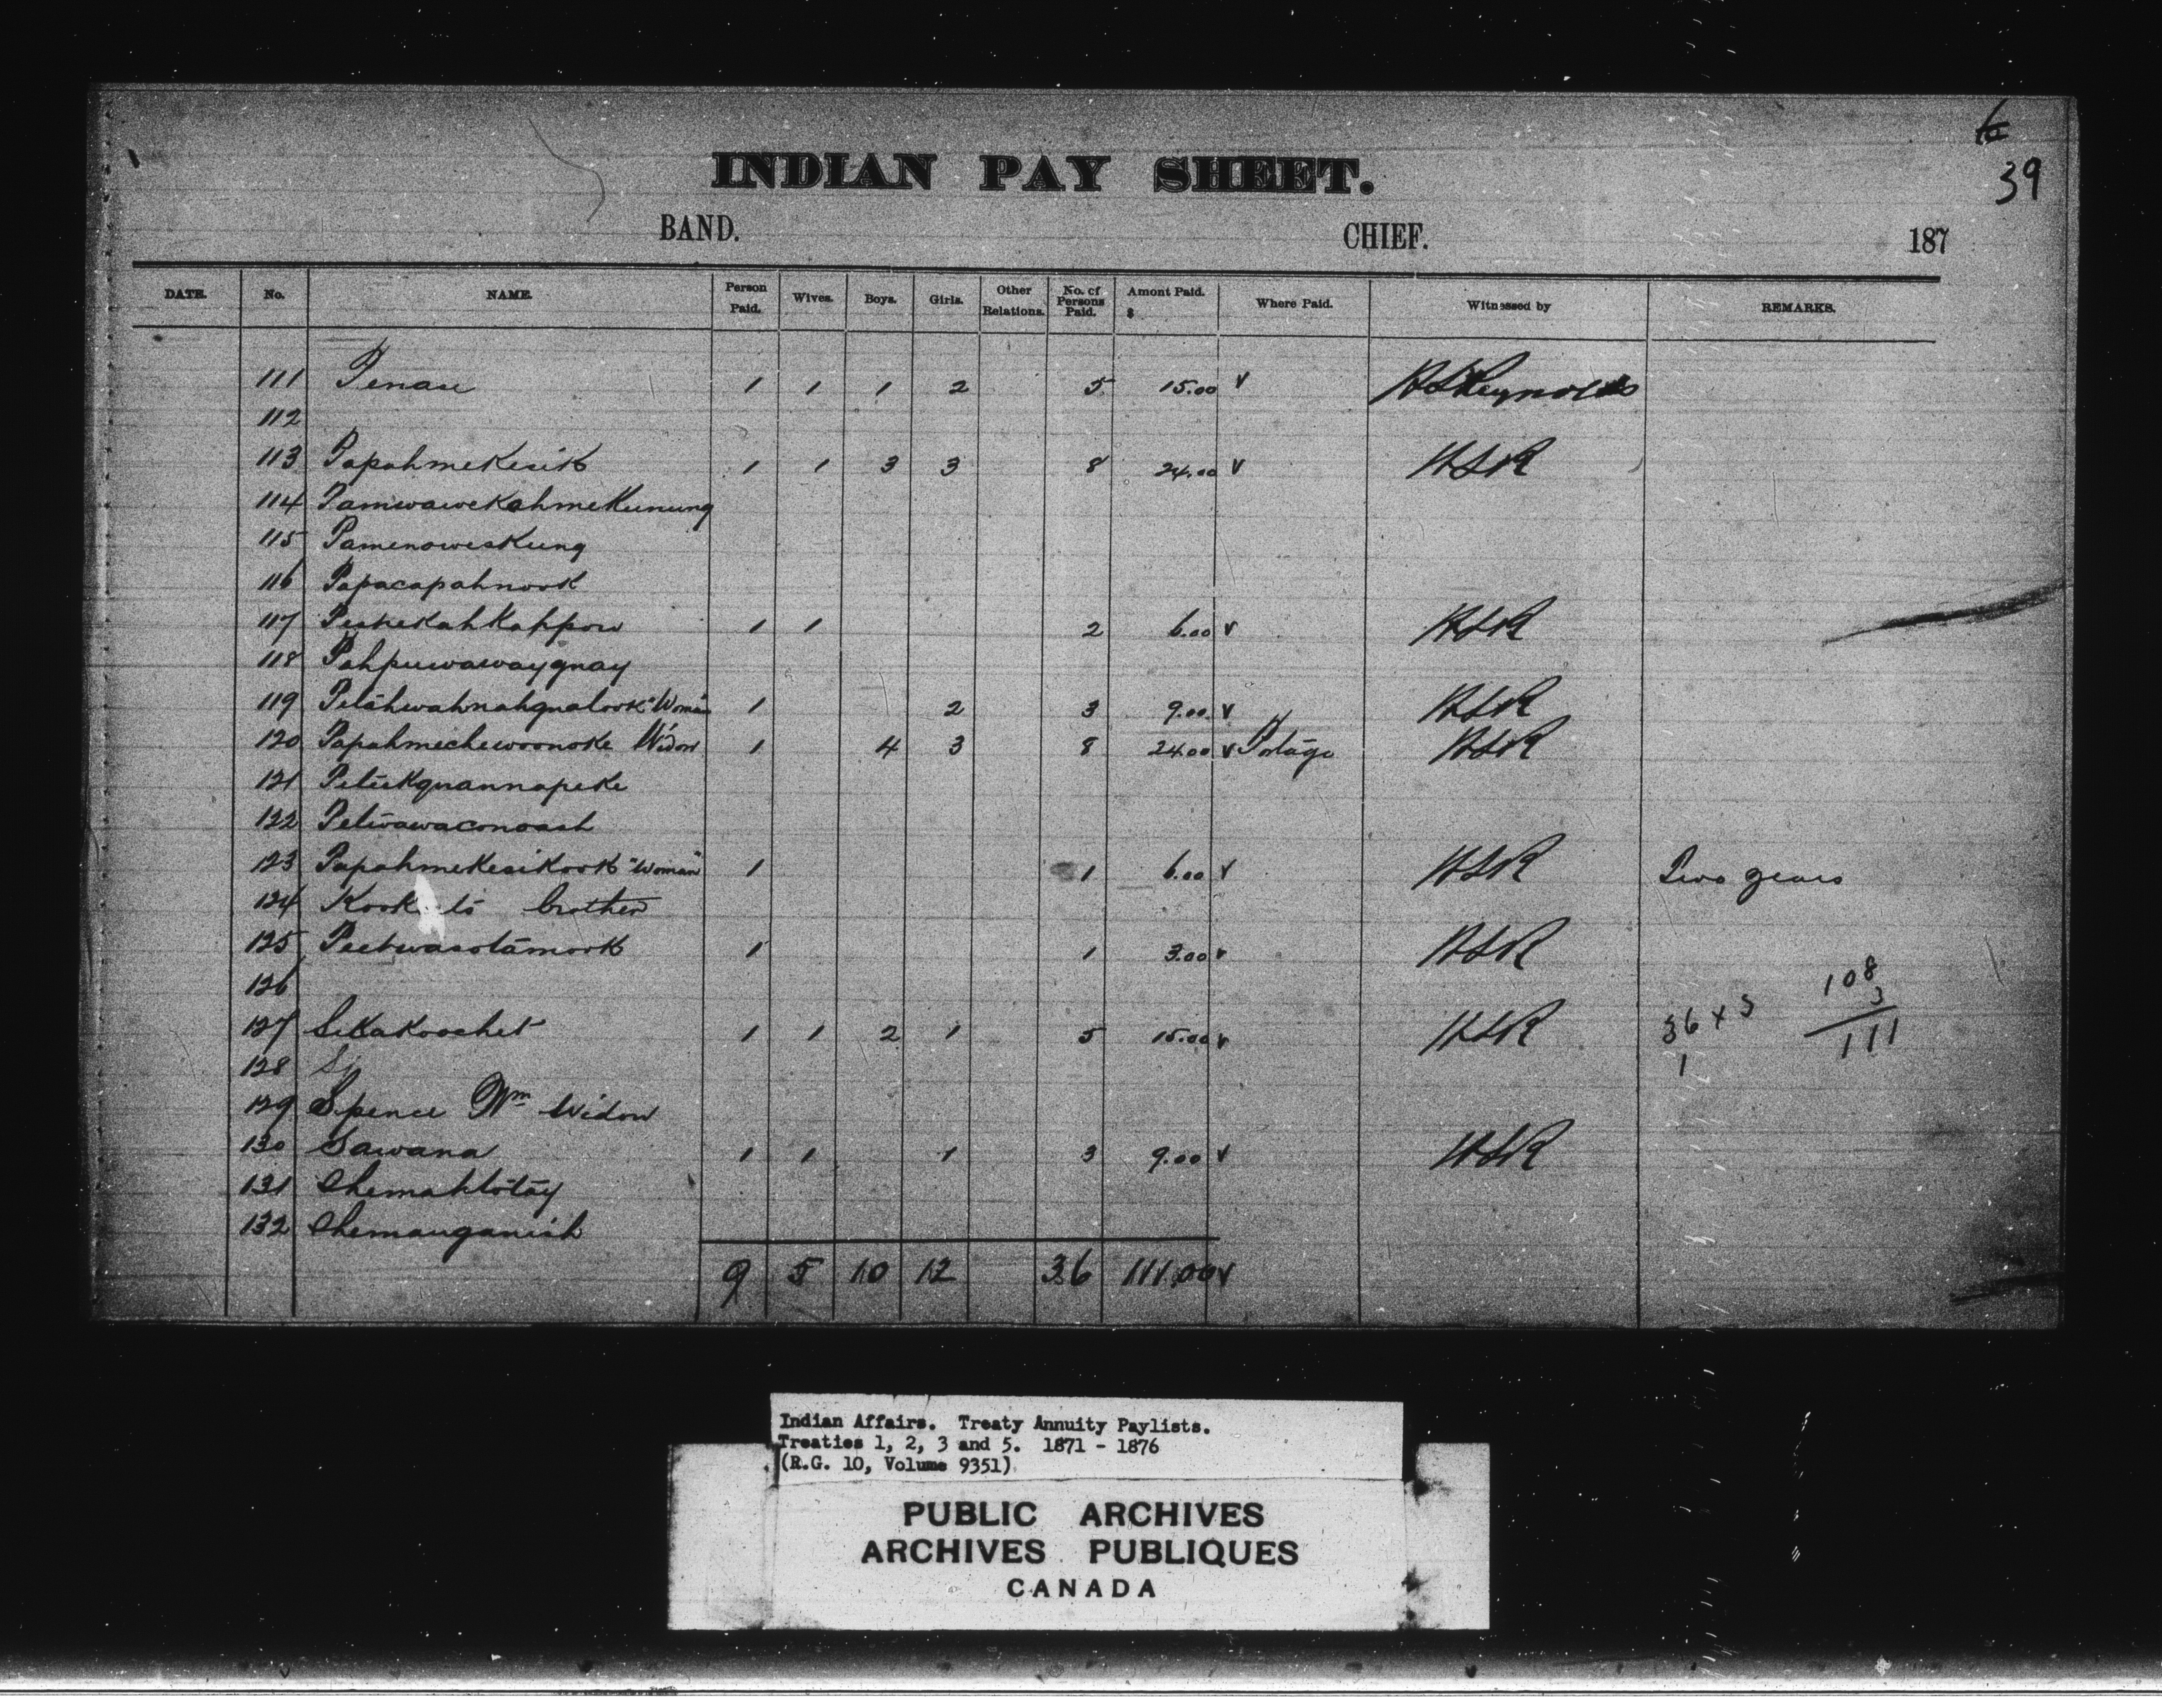 39
INDIAN PAY SHEET.
BAND. CHIEF. 187
DATE. No. NAME. Person Paid. Wives. Boys. Girls. Other Relations. No. of Persons Paid. Amont Paid. $ Where Paid. Witnessed by REMARKS.
111 Penau 1 1 1 2 5 15.00 v HSReynolds
112
113 Papahmekesik 1 1 3 3 8 24.00 v HSR
114 Pamwawekahmekunung
115 Pamenoweskung
116 Papacapahnook
117 Peshekahkappow 1 1 2 6.00 v HSR
118 Pahpuwawayguay
119 Petahwahnahqualook "Woman" 1 2 3 9.00 v HSR
120 Papahmechewoonoke Widow 1 4 3 8 24.00 v Portage HSR
121 Peteekquannapeke
122 Petwawaconoash
123 Papahmekesikook "Woman" 1 1 6.00 v HSR Two years
124 brother
125 Peetwasotamook 1 1 3.00 v HSR
126
127 Sekakoochet 1 1 2 1 5 15.00 v HSR 36 x 3 108
128 S 1 3
111
129 Spence Wm Widow
130 Sawana 1 1 1 3 9.00 v HSR
131 Chemahtotay
132 Chemauganish
9 5 10 12 36 111.00 v
Indian Affairs. Treaty Annuity Paylists.
Treaties 1, 2, 3 and 5. 1871 - 1876
(R.G. 10, Volume 9351)
PUBLIC ARCHIVES
ARCHIVES PUBLIQUES
CANADA